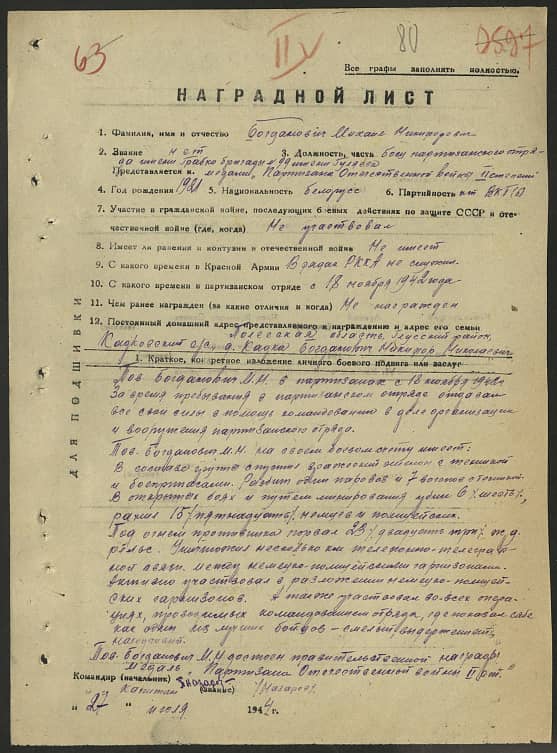 63
II V
80
Все графы заполнять полностью.
НАГРАДНОЙ ЛИСТ
1. Фамилия, имя и отчество Богданович Михаил Никифорович
2. Звание нет 3. Должность, часть боец партизанского отря-
да имени Фрунзе бригады № 99 имени Гуляева
Представляется к медали „Партизана Отечественной войны II степени
4. Год рождения 1921 5. Национальность белорусс 6. Партийность к-т ВКП(б)
7. Участие в гражданской войне, последующих боевых действиях по защите СССР и оте-
чественной войне (где, когда) Не участвовал
8. Имеет ли ранения и контузии в отечественной войне Не имеет
9. С какого времени в Красной Армии В рядах РККА не служил.
10. С какого времени в партизанском отряде с 18 ноября 1942 года
11. Чем ранее награжден (за какие отличия и когда) Не награжден
12. Постоянный домашний адрес представляемого к награждению и адрес его семьи
Полесская область, Глусский район,
с/с, д. Богданович Никифор Николаевич
1. Краткое, конкретное изложение личного боевого подвига или заслуг
Тов. Богданович М.Н. в партизанах с 18 ноября 1942 г.
За время пребывания в партизанском отряде отдавал
все свои силы в помощь командованию в деле организации
и вооружения партизанского отряда.
Тов. Богданович М.Н. на своем боевом счету имеет:
В составе группы спустил вражеский эшелон с техникой
и боеприпасами. Разбит один паровоз и 7 вагонов с техникой.
В открытых боях и путем минирования убил 6 /шесть/,
ранил 15 /пятнадцать/ немцев и полицейских.
Под огнем противника порвал 23 /двадцать три/ ж.д.
рельс. Уничтожил несколько км телефонно-телегра-
фной связи между немецко-полицейскими гарнизонами.
Активно участвовал в разложении немецко-полицей-
ских гарнизонов. А также участвовал во всех опера-
циях, проводимых командованием отряда, где показал себя
как один из лучших бойцов – смелый, выдержанный,
находчивый.
Тов. Богданович М.Н. достоен правительственной награды
медаль „Партизана Отечественной войны II ст."
Командир (начальник)
Капитан (звание) /Назаров/
„27" июля 1944 г.
ДЛЯ ПОДШИВКИ